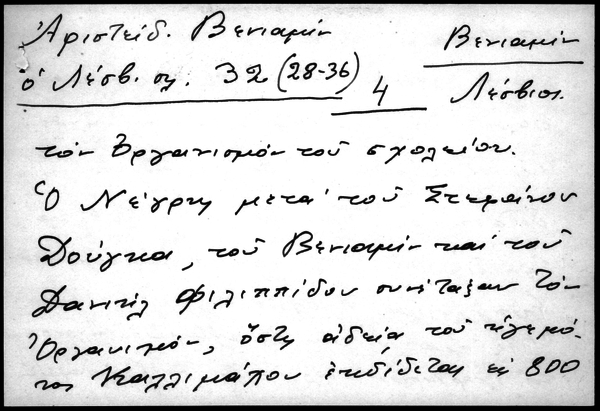 Ἀριστείδ. Βενιαμίν
ὁ Λέσβ. σλ. 32 (28-36)
4
Βενιαμίν
Λέσβιος.
τόν Ὀργανισμόν τοῦ σχολείου.
Ὁ Νέγρης μετά τοῦ Στεφάνου
Δούγκα, τοῦ Βενιαμίν καί τοῦ
Δανιήλ Φιλιππίδου συνέταξαν τόν
Ὀργανισμόν, ὅστις ἀδείᾳ τοῦ ἡγεμό-
νος Καλλιμάχου ἐκδίδεται εἰς 800